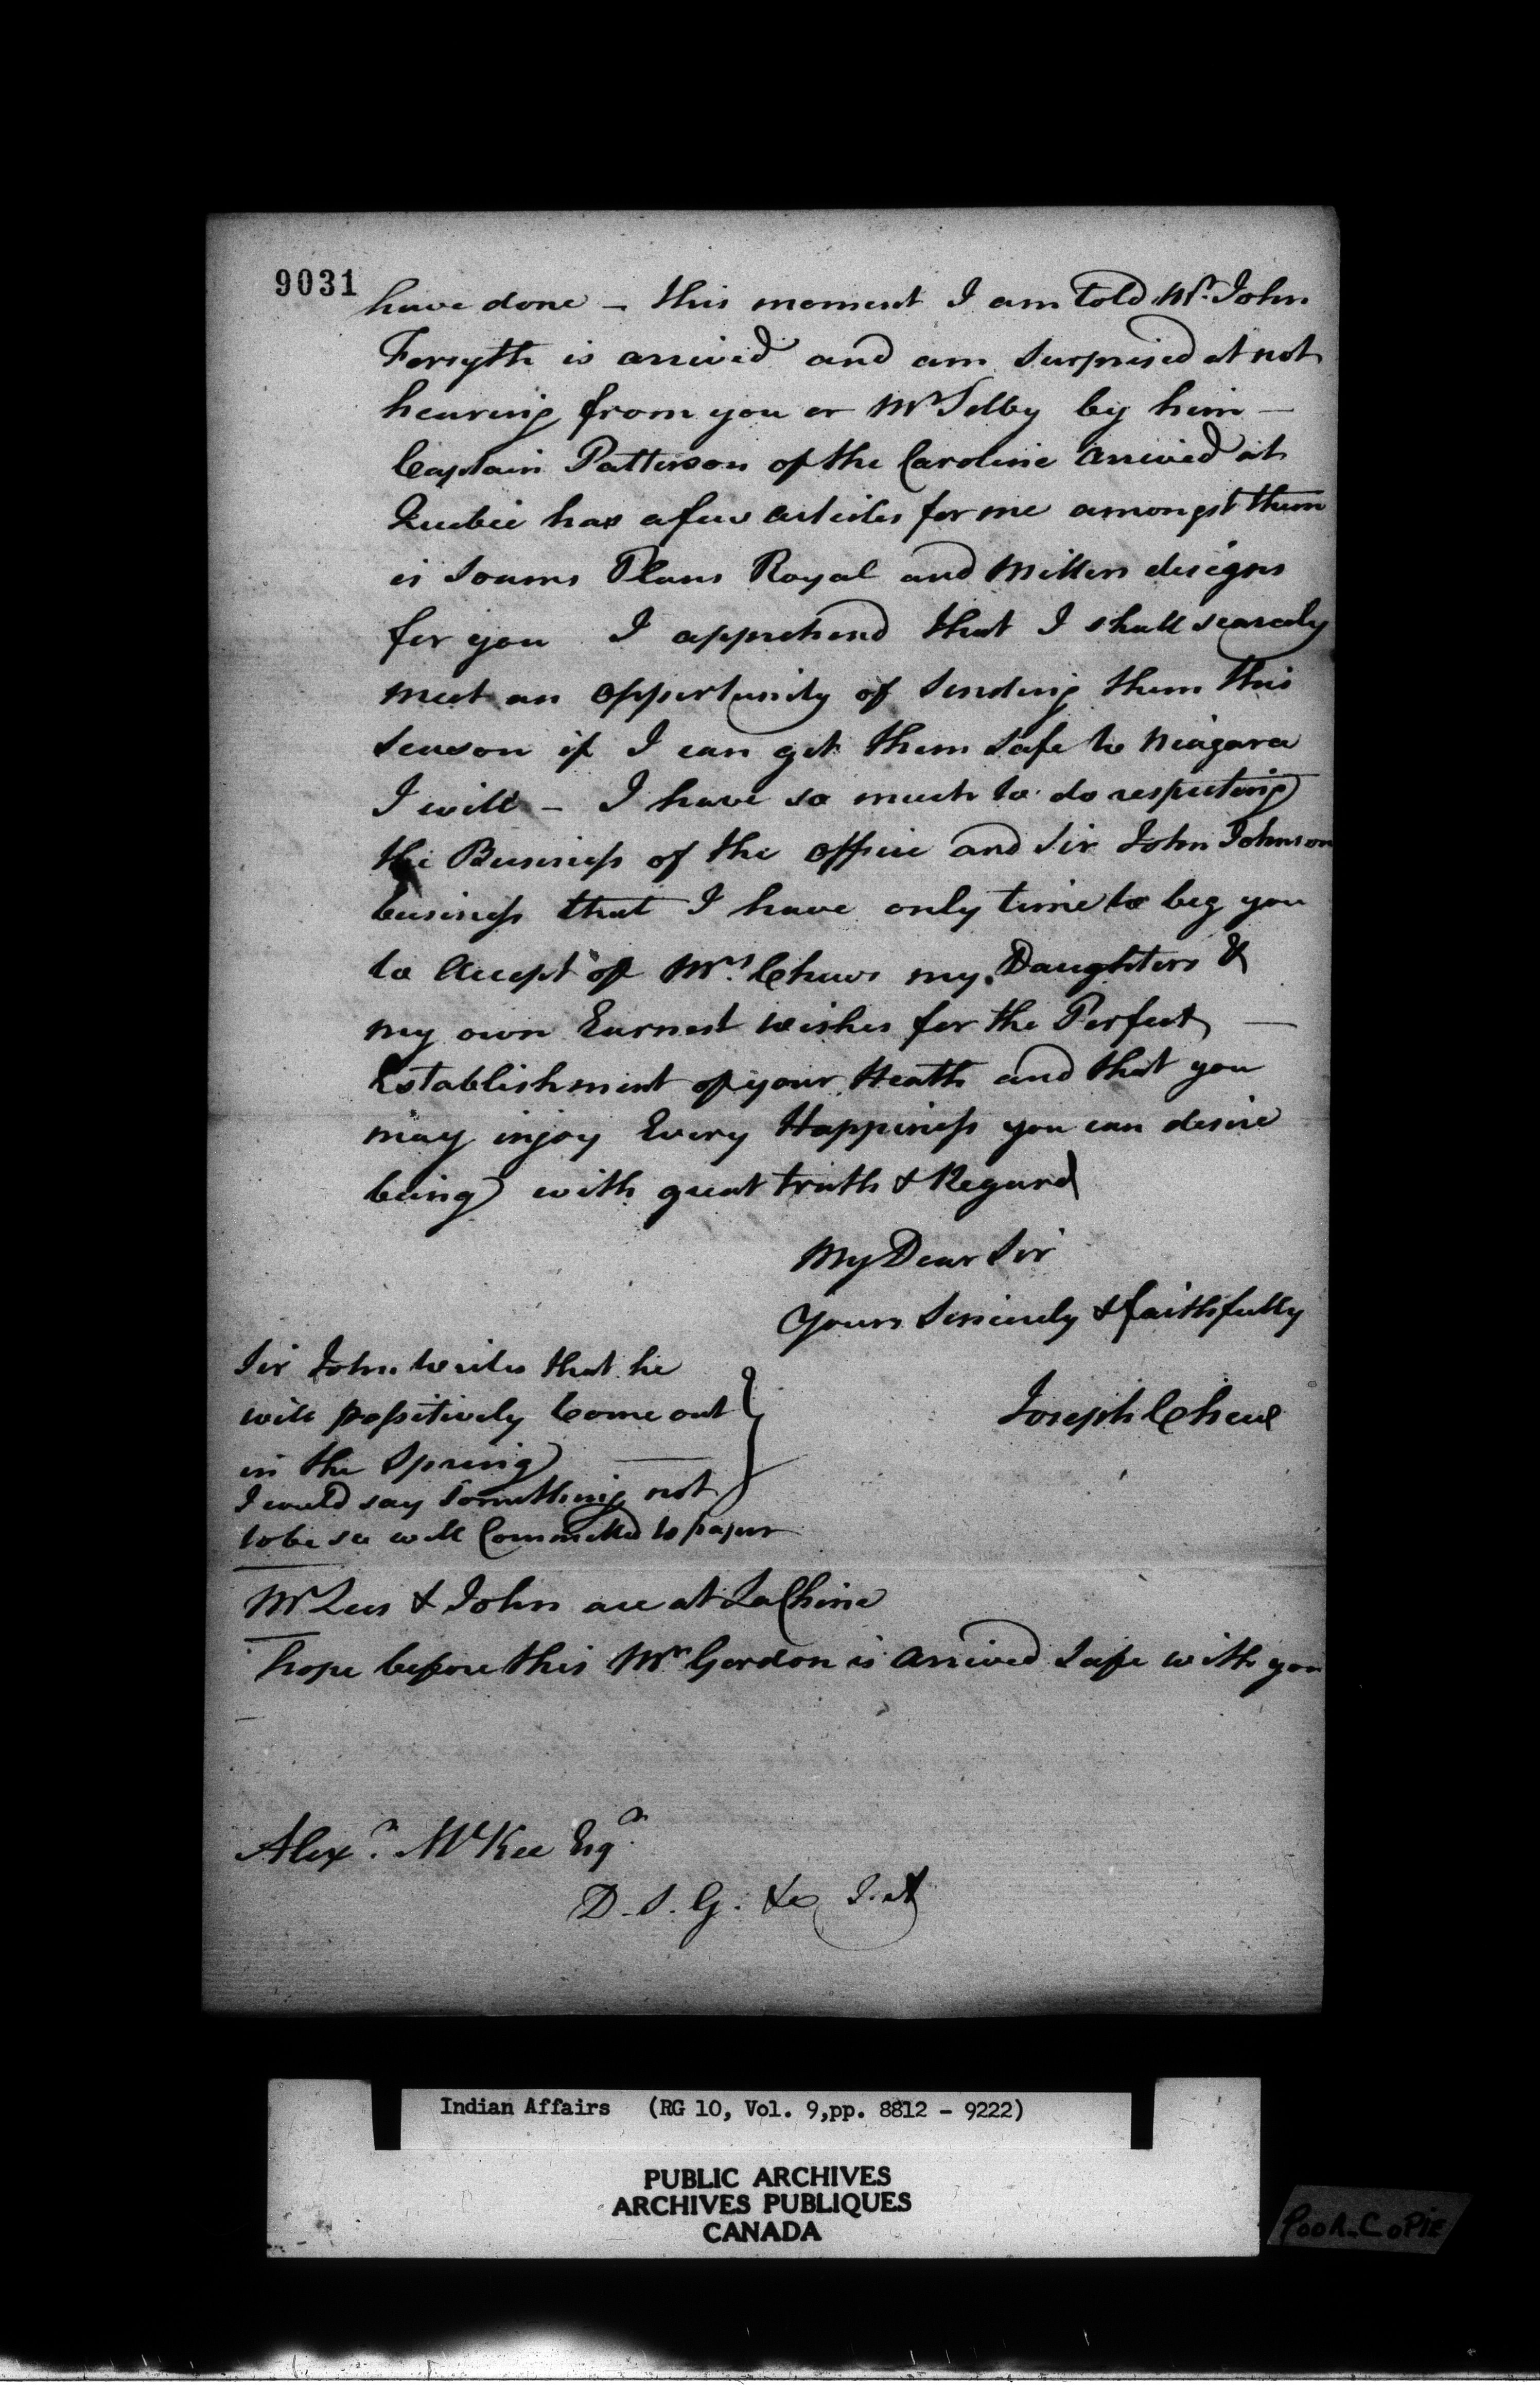 9031
have done – this moment I am told Mr. John
Forsyth is arrived and am surprised at not
hearing from you or Mr Selby by him –
Captain Patterson of the Caroline arrived at
Quebec has a few articles for me amongst them
is Plans Royal and designs
for you I apprehend that I shall scarcely
meet an oppertunity of sending them this
season if I can get them safe to Niagara
I will – I have so much to do respecting
the Business of the office and Sir John Johnson
business that I have only time to beg you
to Accept of Mrs. Chews my Daughters &
my own Earnest wishes for the Perfect –
Establishment of your Heath and that you
may injoy Every Happiness you can desire
being with great truth & Regard
My Dear Sir
Yours Sincerely & faithfully
Joseph Chew
Sir John writes that he
will possitively Come out
in the Spring –
I would say something not
to be so well Committed to paper
Mr Lees & John are at LaChine
hope before this Mr Gordon is arrived safe with you
Alexr. McKee Esqr.
D. S. G. &c I. A
Indian Affairs (RG 10, Vol. 9,pp. 8812 - 9222)
PUBLIC ARCHIVES
ARCHIVES PUBLIQUES
CANADA
POOR COPIE